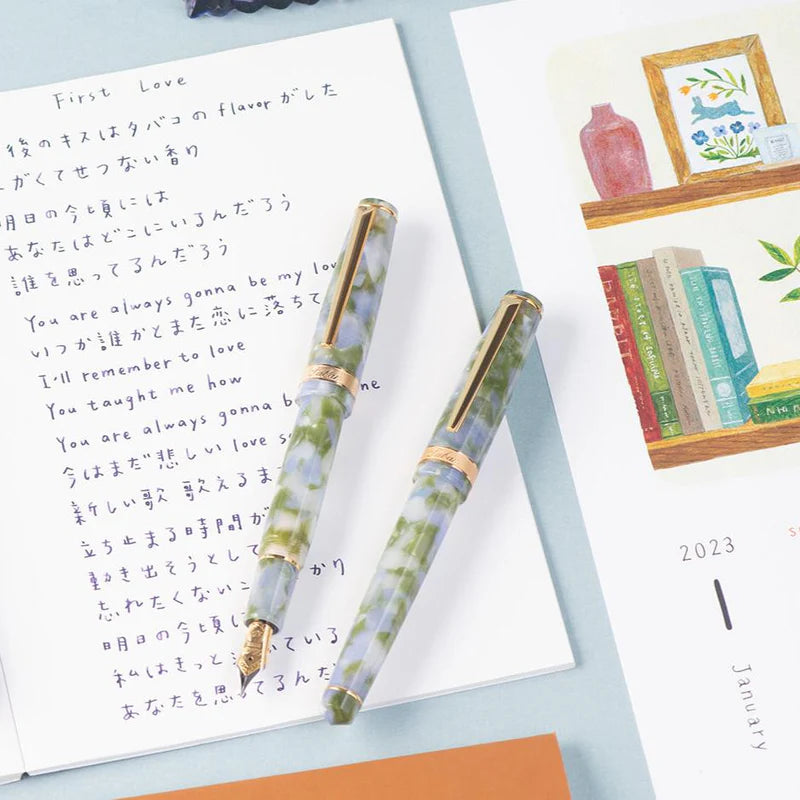 First Love
後のキスはタバコの flavor がした
がくてせつない香り
明日の今頃には
あなたはどこにいるんだろう
誰を思ってるんだろう
You are always gonna be my
いつか誰かとまた恋に落ちて
I'll remember to love
You taught me how
You are always gonna b
今はまだ悲しい love s
新しい歌 歌えるま
立ち止まる時間が
動き出そうとして
忘れたくないこ かり
明日の今頃に
私はきっと いている
あなたを思ってるんだ
2023
1
January